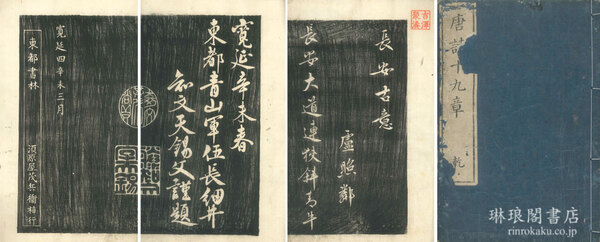 唐詩十九章 乾
長安古意
盧照鄰
長安大道連狹斜青牛
寛延辛未春
東都青山軍伍長細井
知文天錫父謹題
寛延四辛未三月
東都書林
須原屋茂兵衛梓行
琳琅閣書店
rinrokaku.co.jp